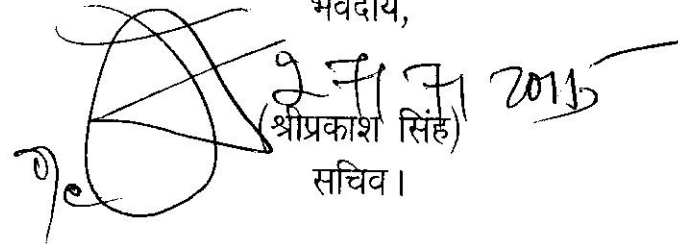 भवदीय,
27/7/2015
(श्रीप्रकाश सिंह)
सचिव।